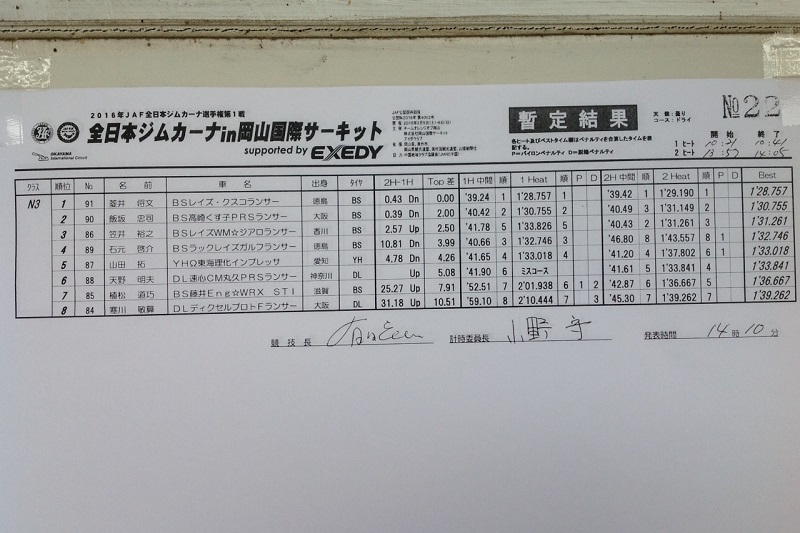 2016年JAF全日本ジムカーナ選手権第1戦
全日本ジムカーナin岡山国際サーキット
supported by EXEDY
OKAYAMA International Circuit
暫定結果
各ヒート及びベストタイム順はペナルティを合算したタイムを表記する。
P=パイロンペナルティ D=脱輪ペナルティ
天候:曇り
コース:ドライ
No 22
開始 終了
1 ヒート 10:21 10:41
2 ヒート 13:57 14:05
クラス 順位 No 名前 車名 出身 タイヤ 2H-1H Top差 1H中間 順 1 Heat 順 P D 2H中間 順 2 Heat 順 P D Best
N3 1 91 菱井 将文 BSレイズ・クスコランサー 徳島 BS 0.43 Dn 0.00 '39.24 1 1'28.757 1 '39.42 1 1'29.190 1 1'28.757
2 90 飯坂 忠司 BS高崎くす子PRSランサー 大阪 BS 0.39 Dn 2.00 '40.42 2 1'30.755 2 '40.49 3 1'31.149 2 1'30.755
3 86 笠井 裕之 BSレイズWM☆ジアロランサー 香川 BS 2.57 Up 2.50 '41.78 5 1'33.826 5 '40.43 2 1'31.261 3 1'31.261
4 89 石元 啓介 BSラックレイズガルフランサー 徳島 BS 10.81 Dn 3.99 '40.66 3 1'32.746 3 '46.80 8 1'43.557 8 1 1'32.746
5 87 山田 拓 YHΩ東海理化インプレッサ 愛知 YH 4.78 Dn 4.26 '41.65 4 1'33.018 4 '41.20 4 1'37.802 6 1 1'33.018
6 88 天野 明夫 DL速心CM丸久PRSランサー 神奈川 DL Up 5.08 '41.90 6 ミスコース '41.61 5 1'33.841 4 1'33.841
7 85 植松 道巧 BS藤井Eng☆WRX STI 滋賀 BS 25.27 Up 7.91 '52.51 7 2'01.938 6 1 2 '42.87 6 1'36.667 5 1'36.667
8 84 寒川 敏算 DLディクセルプロトFランサー 大阪 DL 31.18 Up 10.51 '59.10 8 2'10.444 7 3 '45.30 7 1'39.262 7 1'39.262
競技長 計時委員長 小野 守 発表時間 14時10分